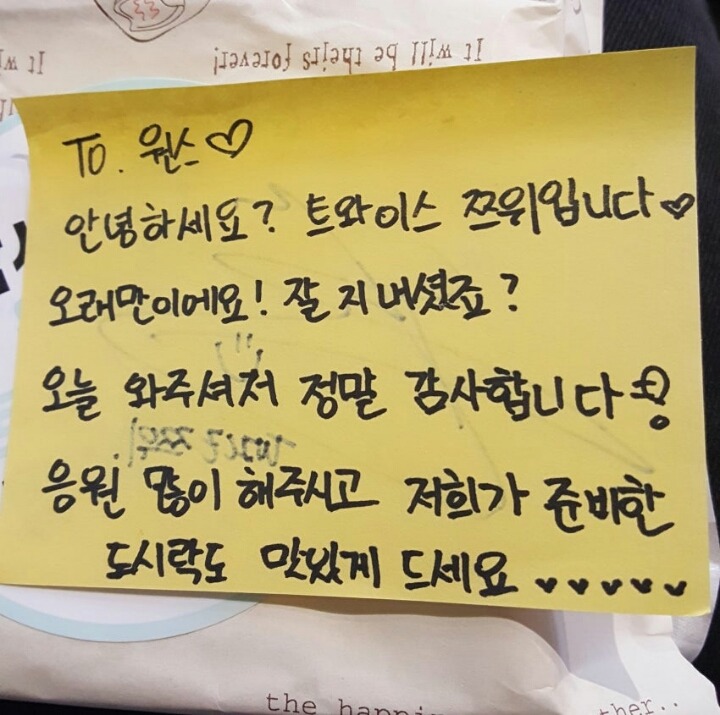 It will be theirs forever!
TO. 원스♡
안녕하세요? 트와이스 쯔위입니다♡
오래만이에요! 잘 지내셨죠?
오늘 와주셔저 정말 감사합니다
응원 많이 해주시고 저희가 준비한
도시락도 맛있게 드세요 ♥♥♥♥♥
the